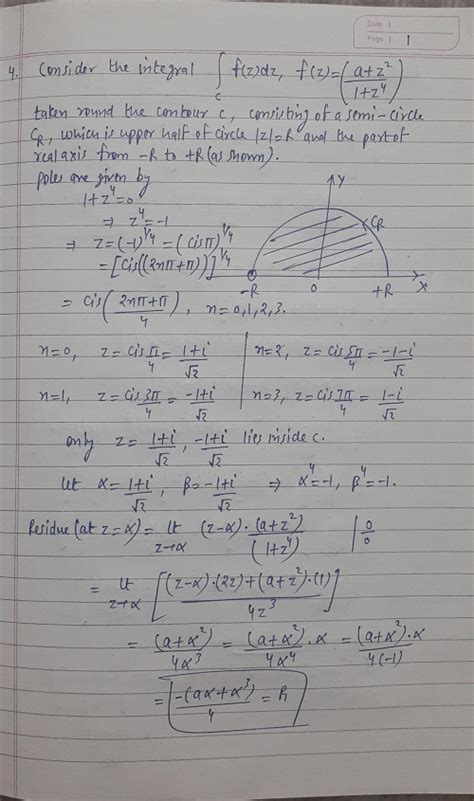 Date :
Page : 1
4. Consider the integral ∫_C f(z)dz, f(z)=((a+z²)/(1+z⁴))
taken round the contour c, consisting of a semi-circle
C_R, which is upper half of circle |z|=R and the part of
real axis from -R to +R (as shown).
poles are given by
1+z⁴=0
⇒ z⁴=-1
⇒ z=(-1)^{1/4}=(cisπ)^{1/4}
=[cis((2nπ+π))]^{1/4}
= cis((2nπ+π)/4), n=0,1,2,3.
Y
C_R
-R 0 +R X
n=0, z=cis π/4 = (1+i)/√2
n=1, z=cis 3π/4 = (-1+i)/√2
n=2, z=cis 5π/4 = (-1-i)/√2
n=3, z=cis 7π/4 = (1-i)/√2
only z = (1+i)/√2, (-1+i)/√2 lies inside c.
let α=(1+i)/√2, β=(-1+i)/√2 ⇒ α⁴=-1, β⁴=-1.
Residue (at z=α) = lt_{z→α} (z-α)·(a+z²)/(1+z⁴) | 0/0
= lt_{z→α} [((z-α)·(2z)+(a+z²)·(1))/4z³]
= (a+α²)/4α³ = (a+α²)·α/4α⁴ = (a+α²)·α/4(-1)
= -(aα+α³)/4 = R